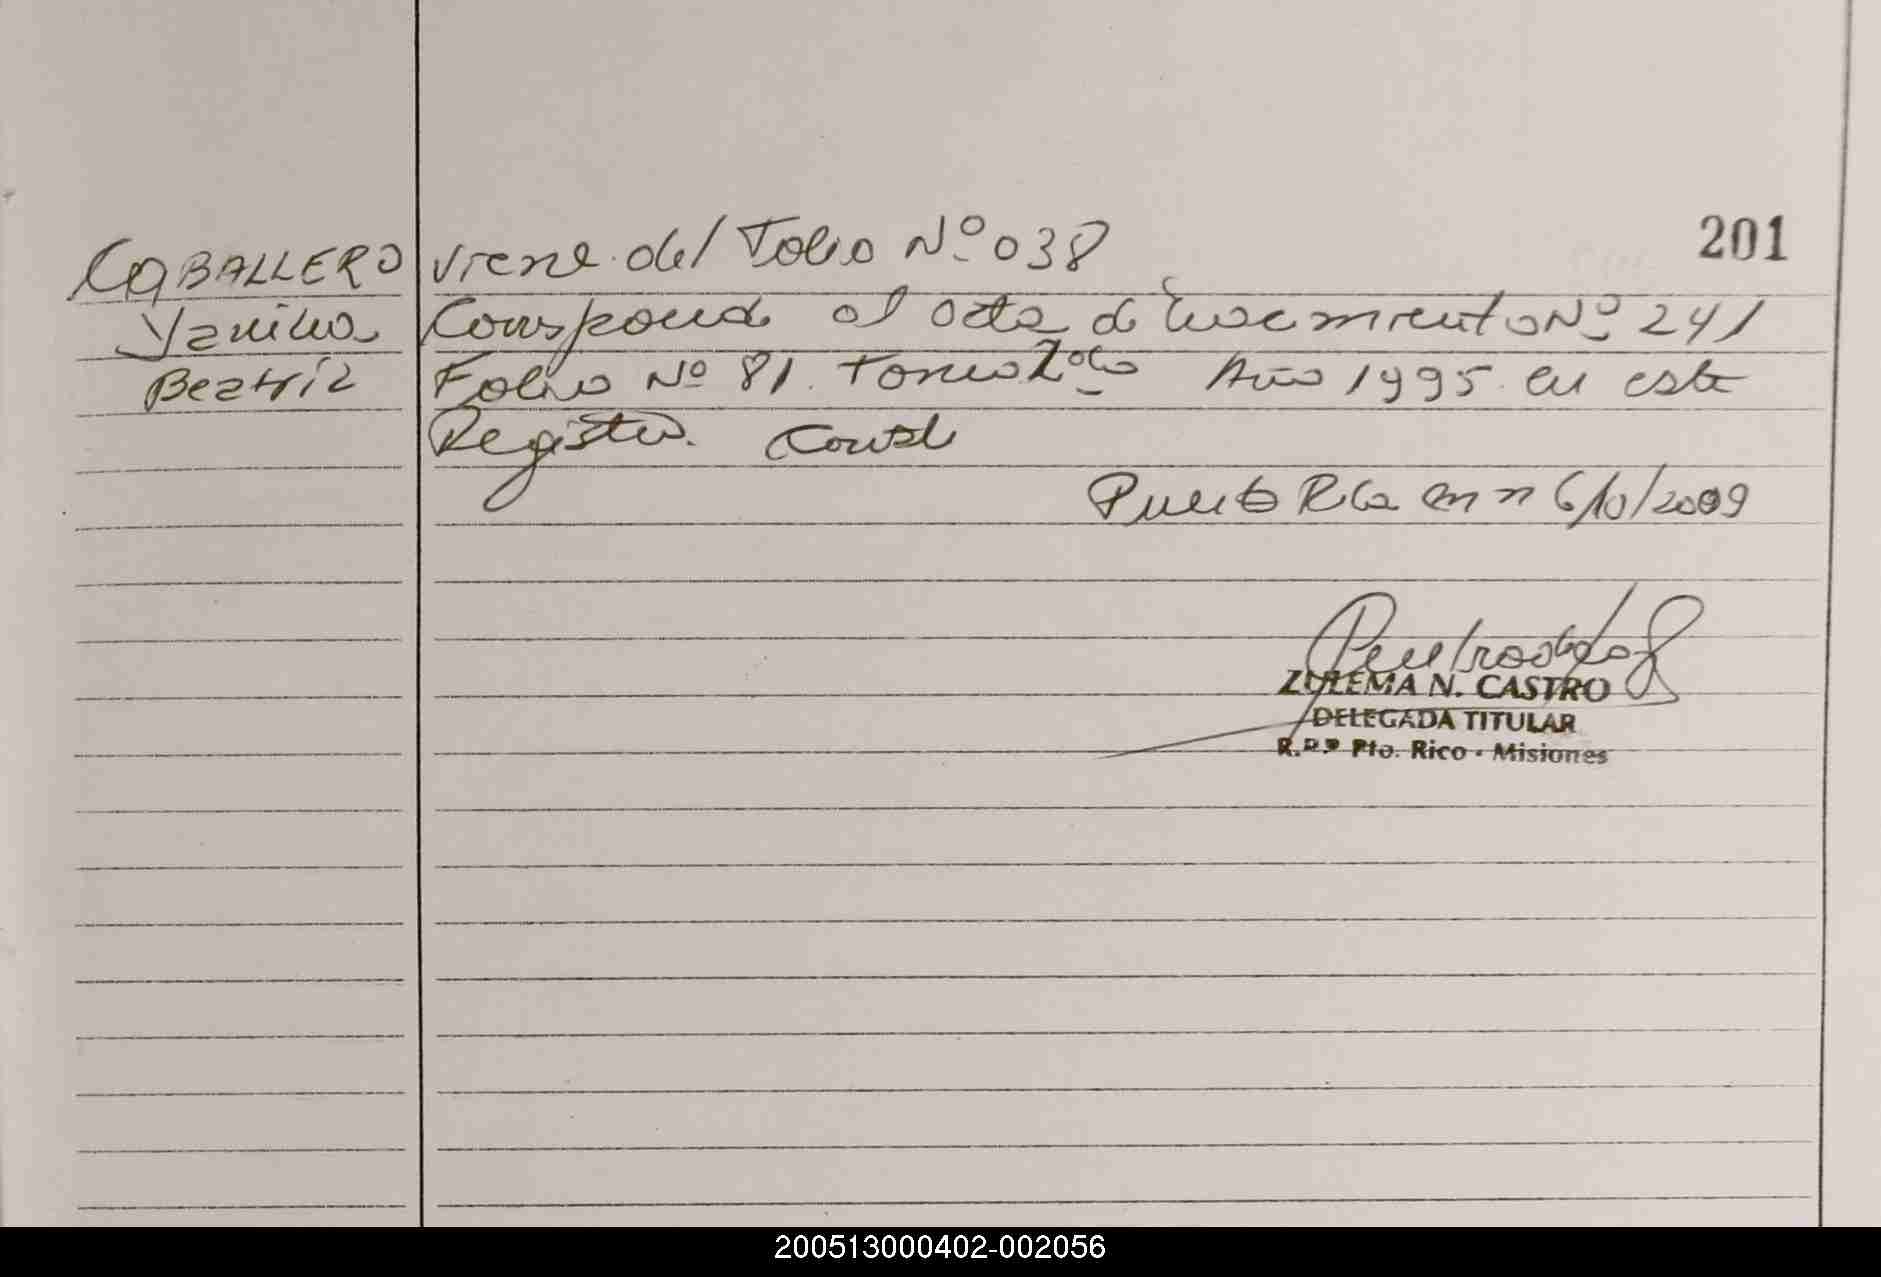 201
CABALLERO
Yanina
Beatriz
Viene del Folio Nº 038
Corresponde al acta de Nacimiento Nº 241
Folio Nº 81. Tomo 2do Año 1995. en este
Registro. Const
Puerto Rico Mnes 6/10/2009
ZULEMA N. CASTRO
DELEGADA TITULAR
R.P.P Pto. Rico - Misiones
200513000402-002056